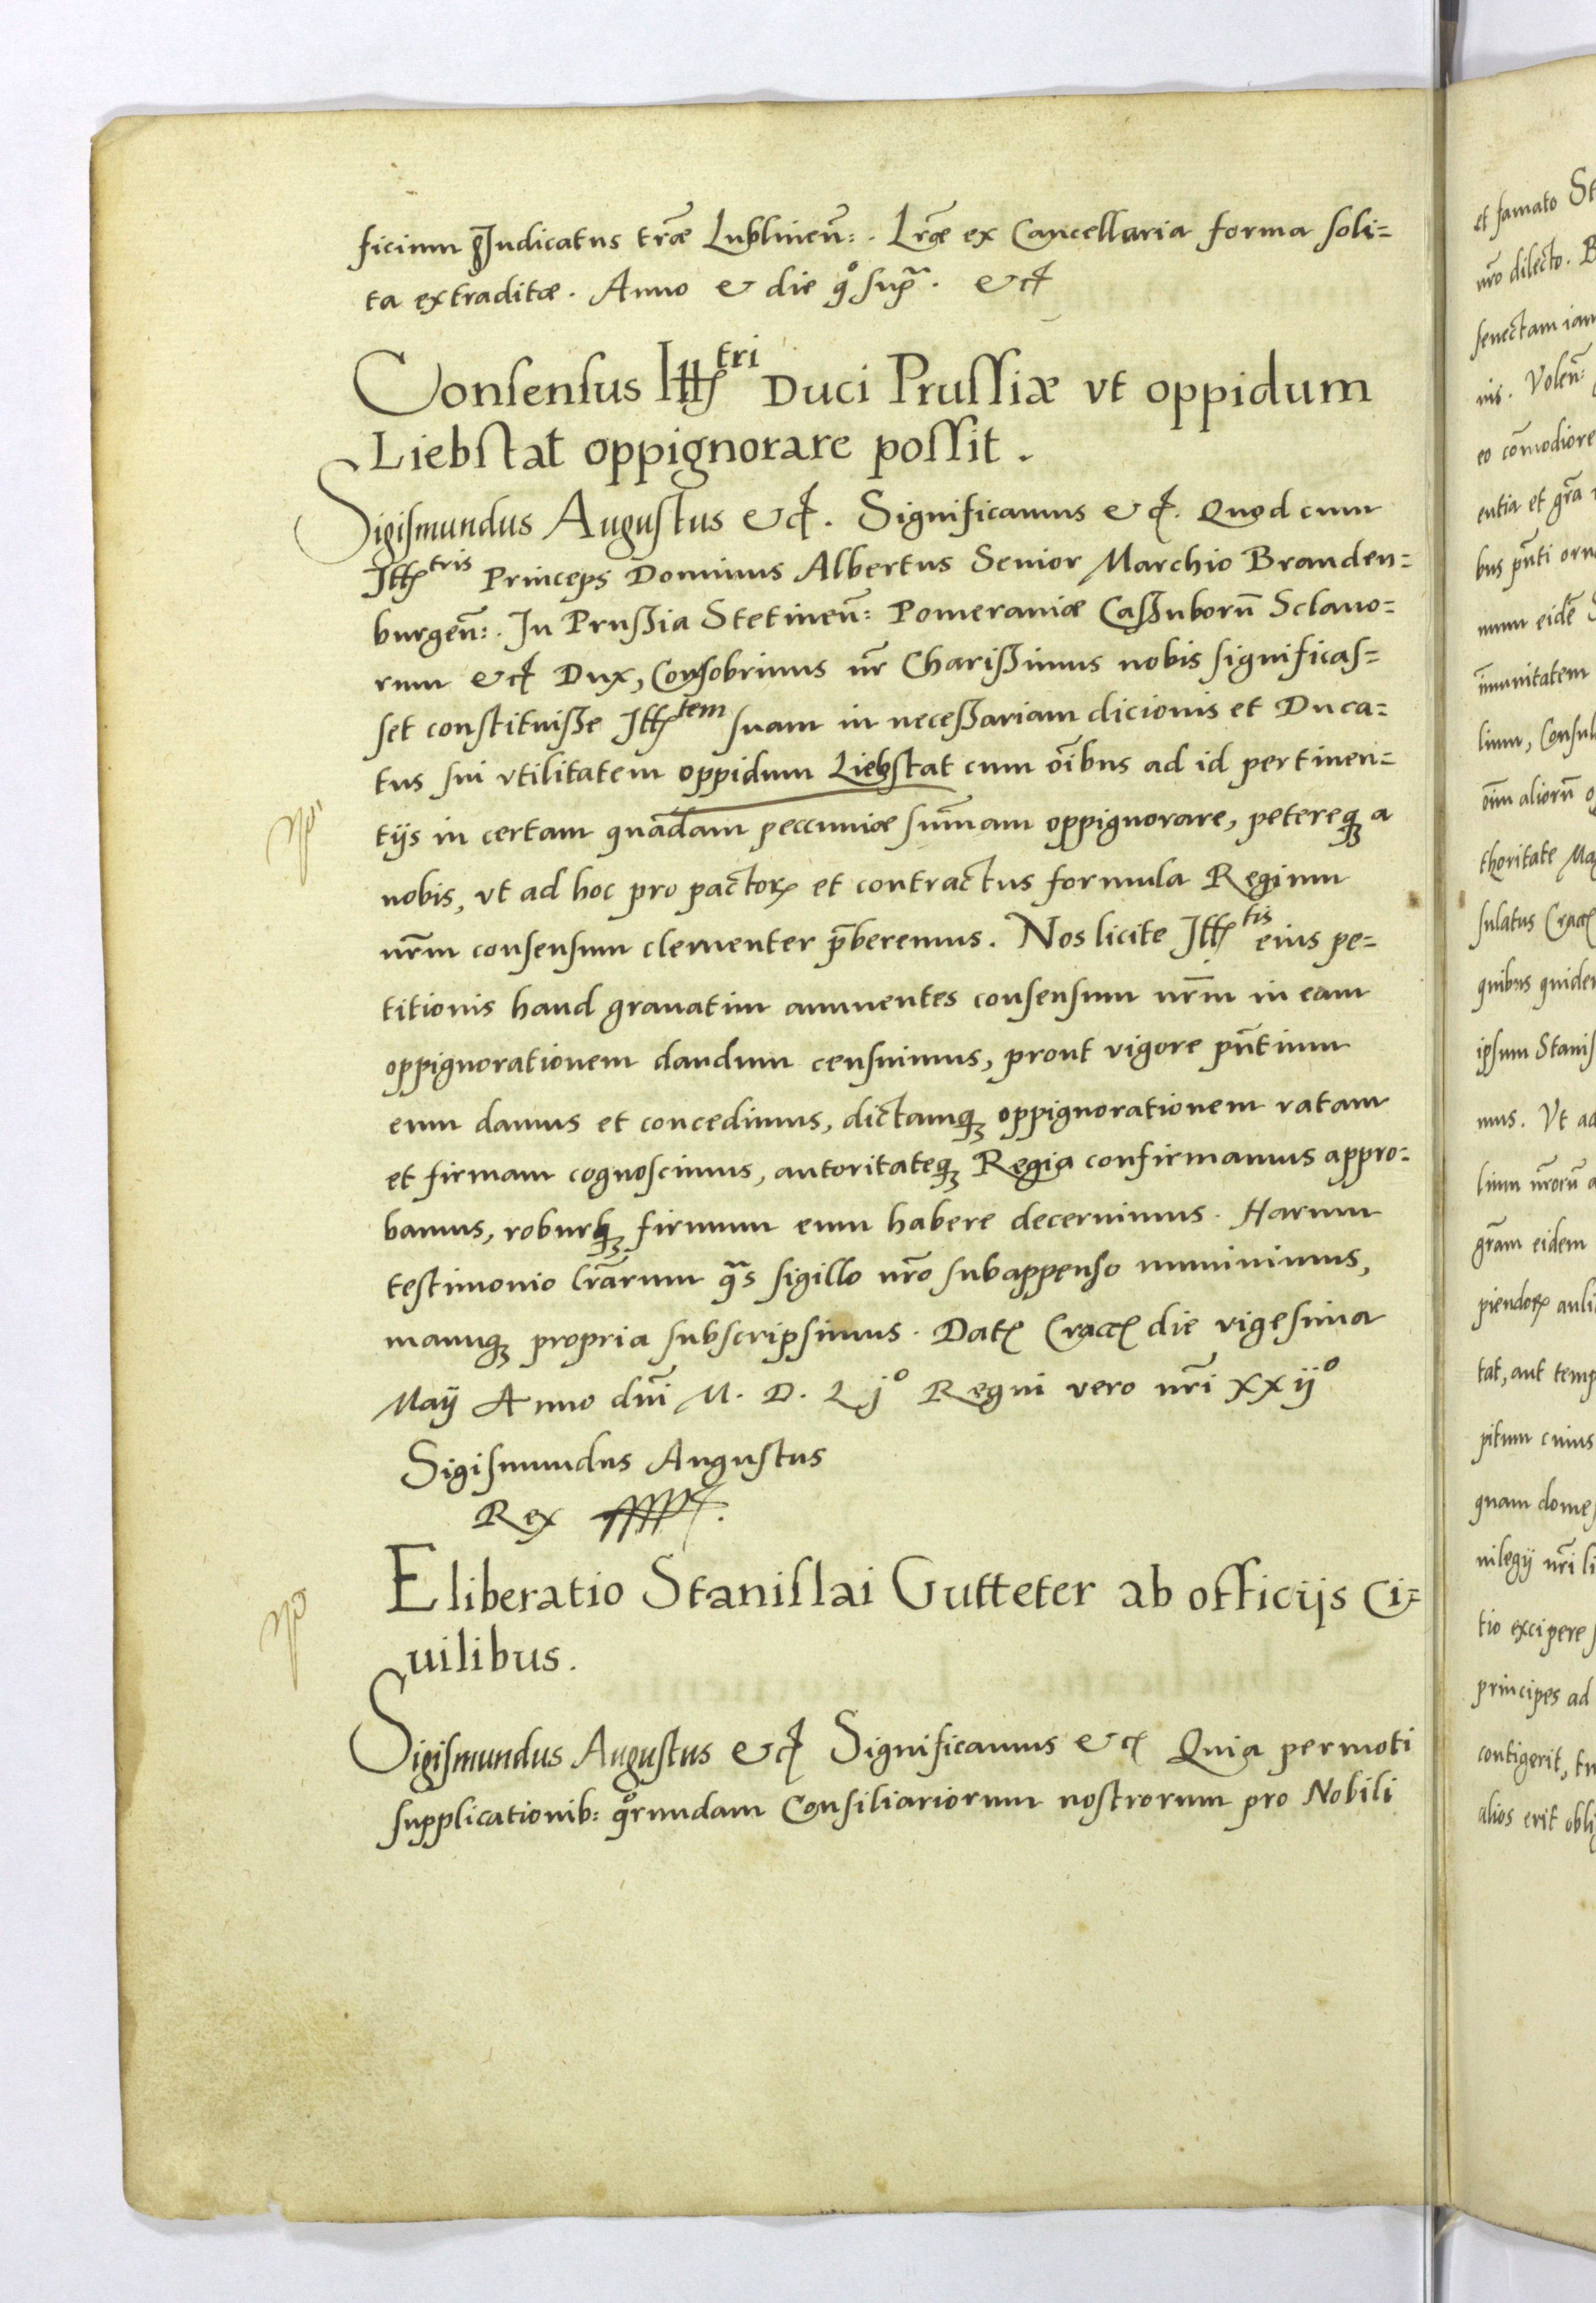 ficium Judicatus træ̃ Lublineñ: . Lræ̃ ex Cancellaria forma soli=
ta extraditæ. Anno & die qͦ supͣ. &c
Consensus Illꝫtri Duci Prussiæ vt oppidum
Liebstat oppignorare possit.
Sigismundus Augustus &c. Significamus &c. Quod cum
Illꝫtris Princeps Dominus Albertus Senior Marchio Branden=
burgeñ: . In Prußia Stetineñ: Pomeraniæ Caßuborũ Sclauo=
rum &c Dux, Consobrinus nr̃ Charißimus nobis significas=
set constituiße Illꝫtem suam in neceßariam dicionis et Duca=
tus sui vtilitatem oppidum Liebstat cum oĩbus ad id pertinen=
tijs in certam quadam peccuniæ sum̃am oppignorare, petereqꝫ a
nobis, vt ad hoc pro pactoꝝ et contractus formula Regium
nr̃m consensum clementer p̃beremus. Nos licite Illꝫtis eius pe=
titionis haud grauatim annuentes consensum nr̃m in eam
oppignorationem dandum censuimus, prout vigore pñtium
eum damus et concedimus, dictamqꝫ oppignorationem ratam
et firmam cognoscimus, autoritateqꝫ Regia confirmamus appro=
bamus, roburqꝫ firmum eum habere decernimus. Harum
testimonio lr̃arum qͣs sigillo nr̃o subappenso muniuimus,
manuqꝫ propria subscripsimus. Datꝭ Craccꝭ die vigesima
Maij Anno dñi M. D. Ljͦ Regni vero nr̃i xxijͦ
Sigismundus Augustus
Rex
Eliberatio Stanislai Gutteter ab officijs Ci=
uilibus.
Sigismundus Augustus &c Significamus &c Quia permoti
supplicationib: qͦrundam Consiliariorum nostrorum pro Nobili
et famato St
nr̃o dilecto. B
senectam iam
nis. Voleñ:
eo com̃odiore
entia et gr̃a
bus pñti orn
num eidẽ
im̃unitatem
lium, Consul
oĩm aliorũ o
thoritate Ma
sulatus Craccꝭ
quibus quidem
ipsum Stanis
mus. Vt ad
lium nr̃orũ a
gr̃am eidem
piendoꝝ auli
tat, aut temp
pitum cuius
quam domes
uilegij nr̃i li
tio excipere
principes ad
contigerit, tu
alios erit obli